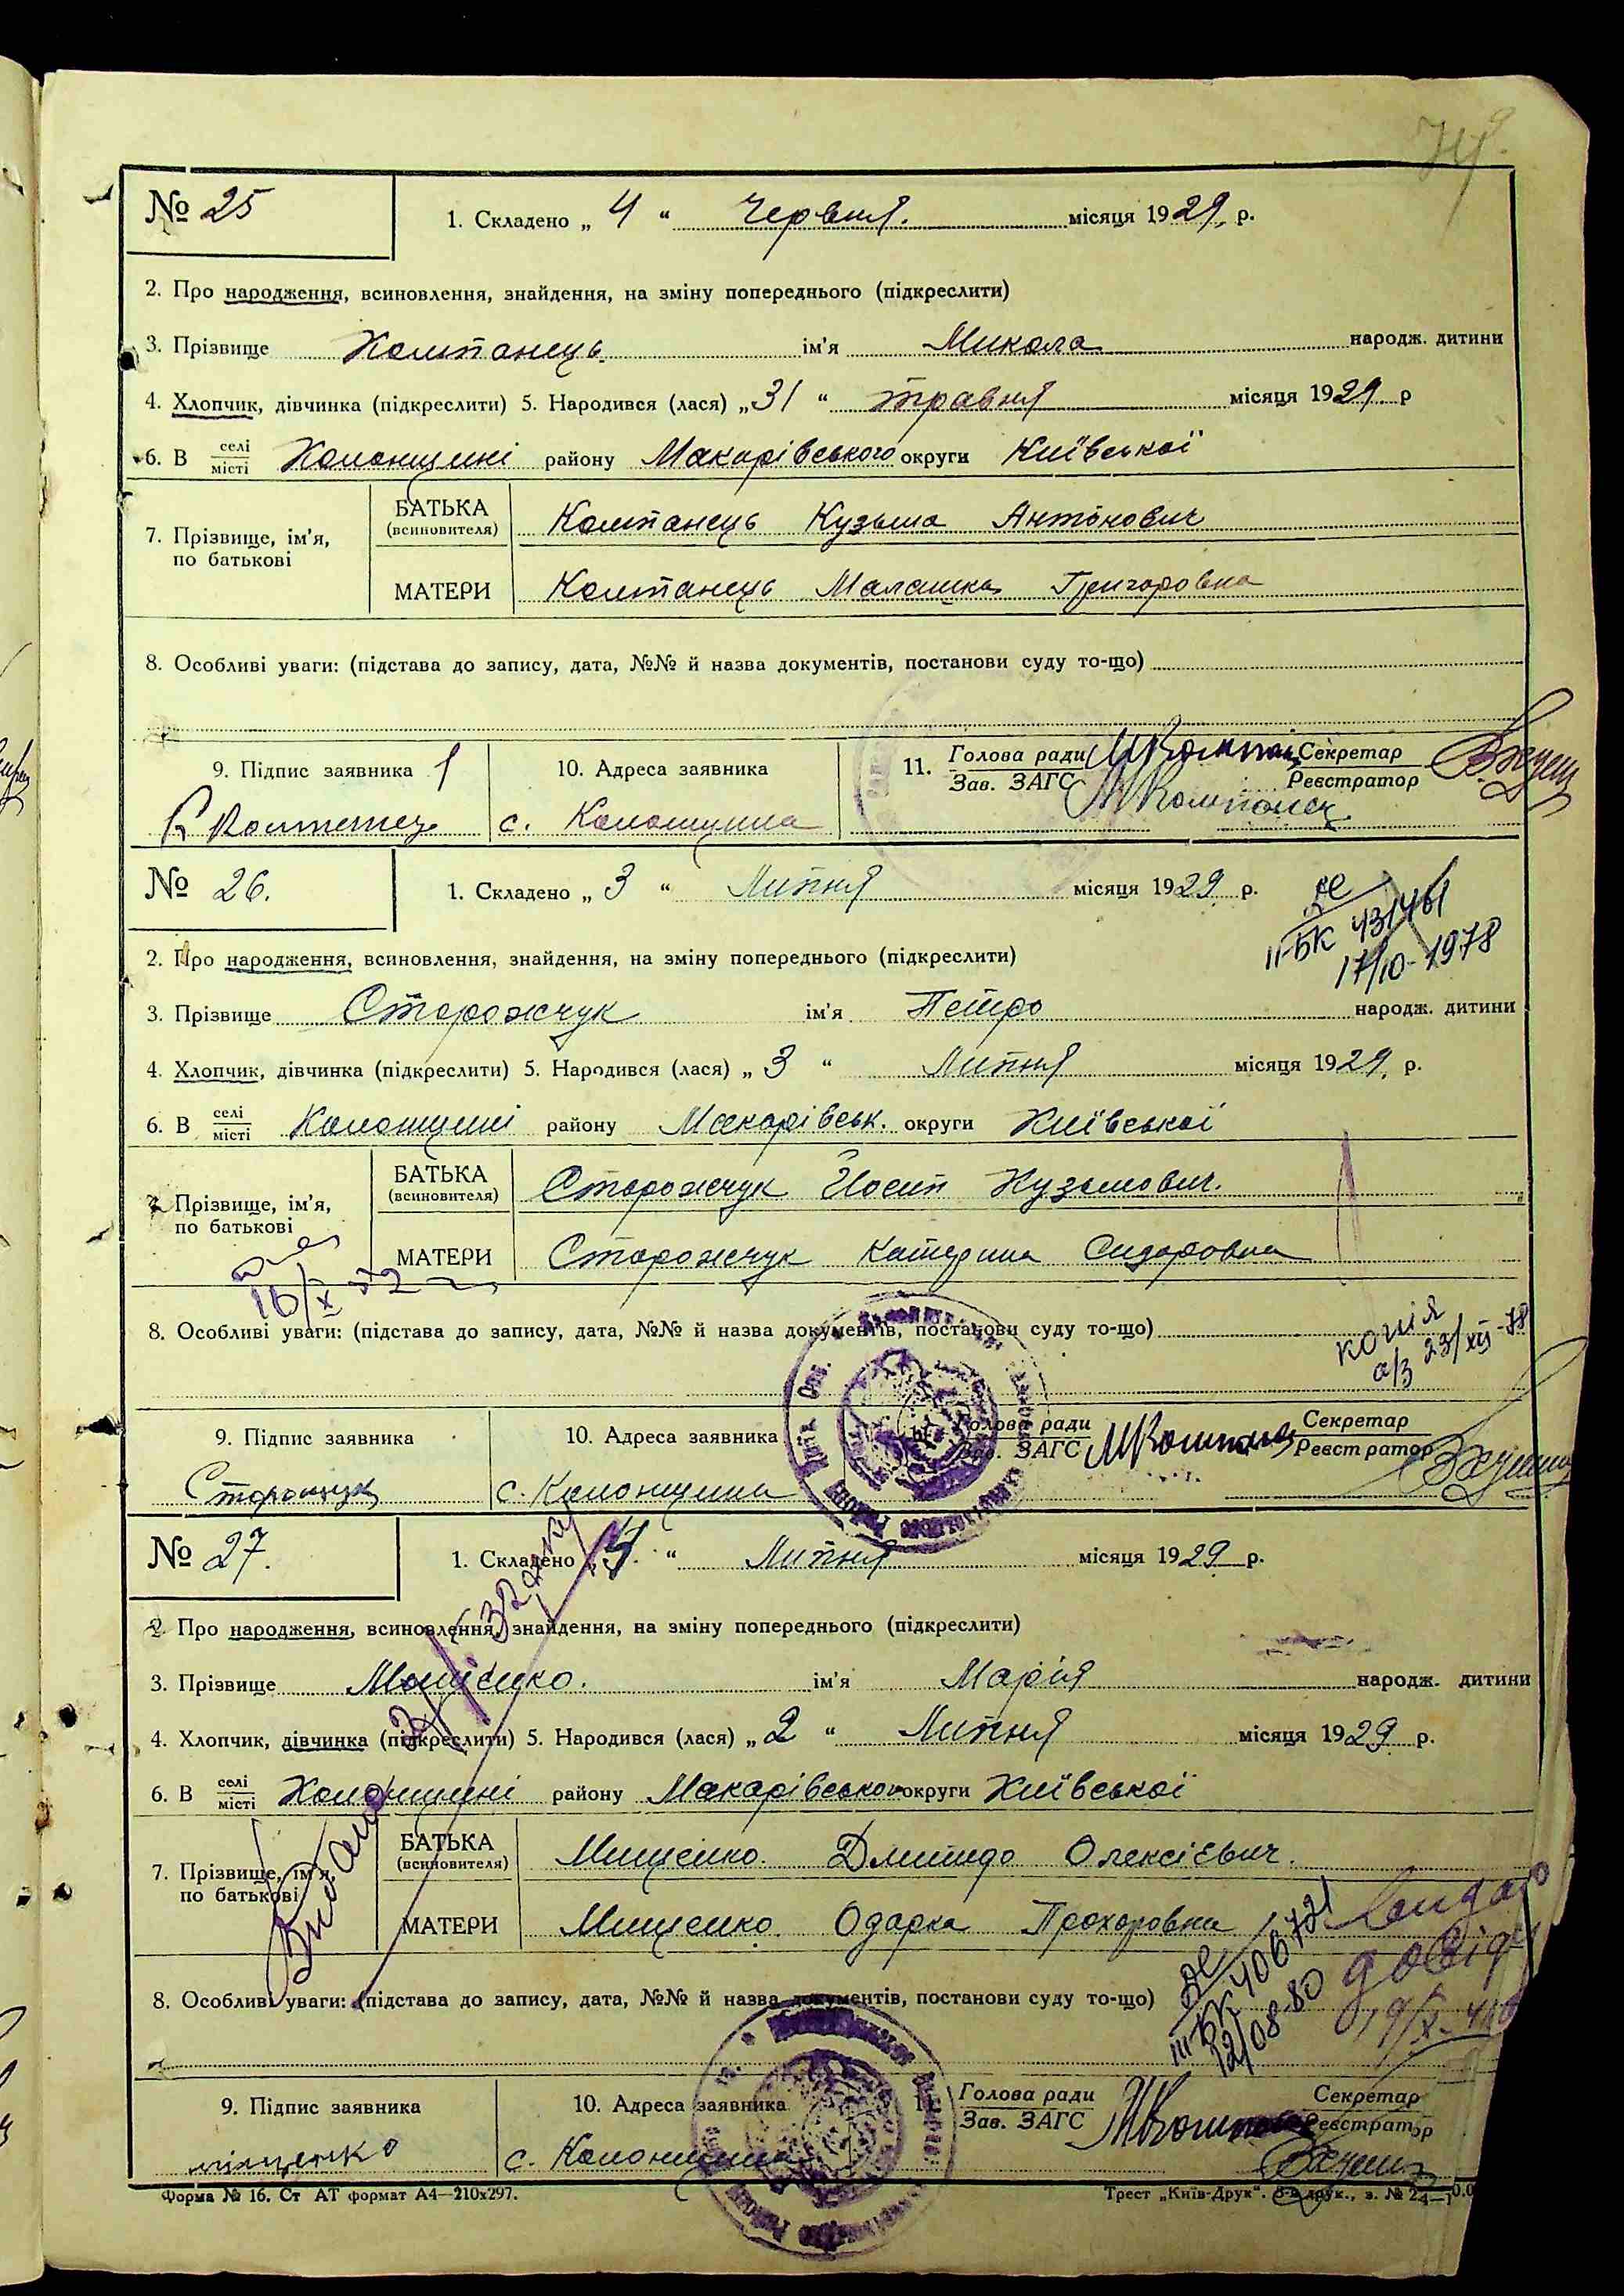 № 25
1. Складено „ 4 “ Червня. місяця 1929 р.
2. Про народження, всиновлення, знайдення, на зміну попереднього (підкреслити)
3. Прізвище Компанець. ім'я Микола народж. дитини
4. Хлопчик, дівчинка (підкреслити) 5. Народився (лася) „31 “ травня місяця 1929 р
6. В селі/місті Колонщині району Макарівського округи Київської
7. Прізвище, ім'я, по батькові
БАТЬКА (всиновителя) Компанець Кузьма Антонович
МАТЕРИ Компанець Малашка Григоровна
8. Особливі уваги: (підстава до запису, дата, №№ й назва документів, постанови суду то-що)
9. Підпис заявника
10. Адреса заявника
11. Голова ради Секретар
Зав. ЗАГС Реєстратор
с. Колонщина
№ 26.
1. Складено „ 3 “ Липня місяця 1929 р.
ІІ-БК 431461
17/10-1978
2. Про народження, всиновлення, знайдення, на зміну попереднього (підкреслити)
3. Прізвище Сторожчук ім'я Петро народж. дитини
4. Хлопчик, дівчинка (підкреслити) 5. Народився (лася) „ 3 “ Липня місяця 1929. р.
6. В селі/місті Колонщині району Макарівськ. округи Київської
7. Прізвище, ім'я, по батькові
БАТЬКА (всиновителя) Сторожчук Йосип Кузьмович.
МАТЕРИ Сторожчук Катерина Сидоровна
8. Особливі уваги: (підстава до запису, дата, №№ й назва документів, постанови суду то-що)
копія
а/з 23/XII-78
9. Підпис заявника
10. Адреса заявника
Голова ради Секретар
Зав. ЗАГС Реєстратор
Сторожчук
с. Колонщина
№ 27.
1. Складено „ 4. “ Липня місяця 1929 р.
2. Про народження, всиновлення, знайдення, на зміну попереднього (підкреслити)
3. Прізвище Мищенко. ім'я Марія народж. дитини
4. Хлопчик, дівчинка (підкреслити) 5. Народився (лася) „ 2 “ Липня місяця 1929 р.
6. В селі/місті Колонщині району Макарівського округи Київської
7. Прізвище, ім'я по батькові
БАТЬКА (всиновителя) Мищенко Дмитро Олексієвич.
МАТЕРИ Мищенко Одарка Прохоровна
8. Особливі уваги: (підстава до запису, дата, №№ й назва документів, постанови суду то-що)
ІІІ БК 406721
12/08-80
9. Підпис заявника
10. Адреса заявника
Голова ради Секретар
Зав. ЗАГС Реєстратор
міщенко
с. Колонщина
Форма № 16. Ст АТ формат А4—210х297.
Трест „Київ-Друк“.